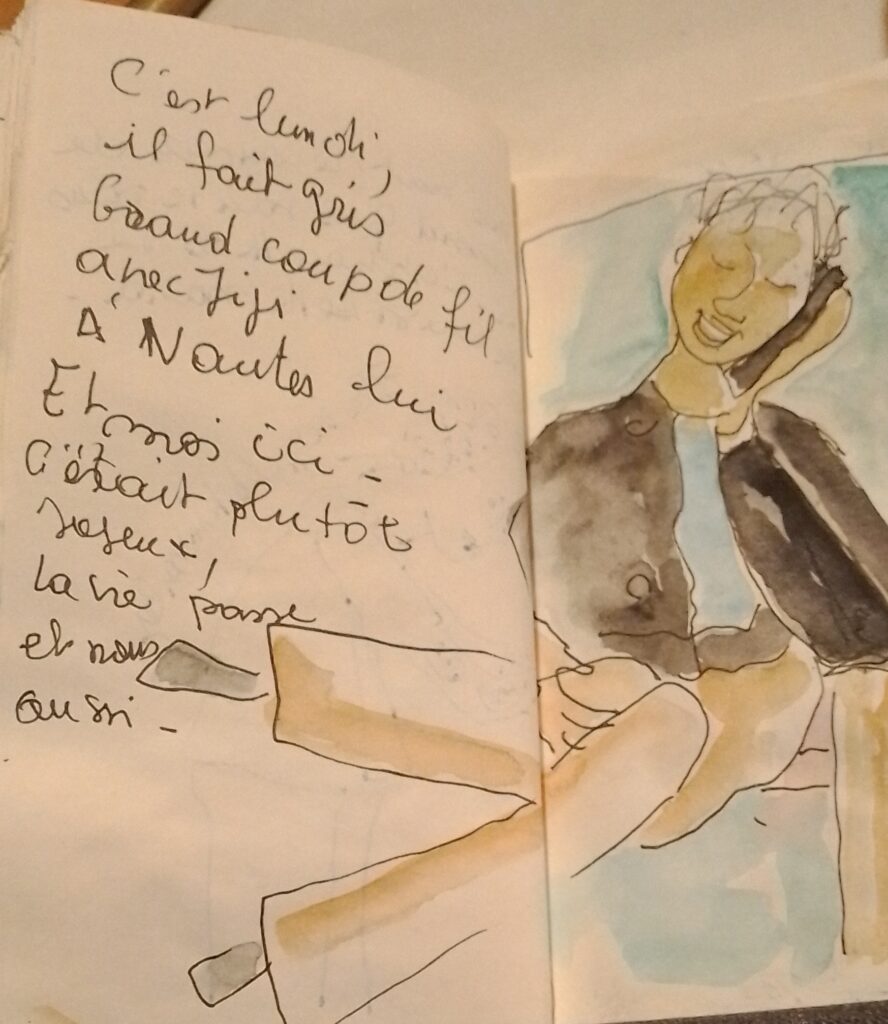 C'est lundi,
il fait gris
Grand coup de fil
avec Jiji
A Nantes lui
Et moi ici -
C'était plutôt
joyeux,
la vie passe
et nous
aussi -